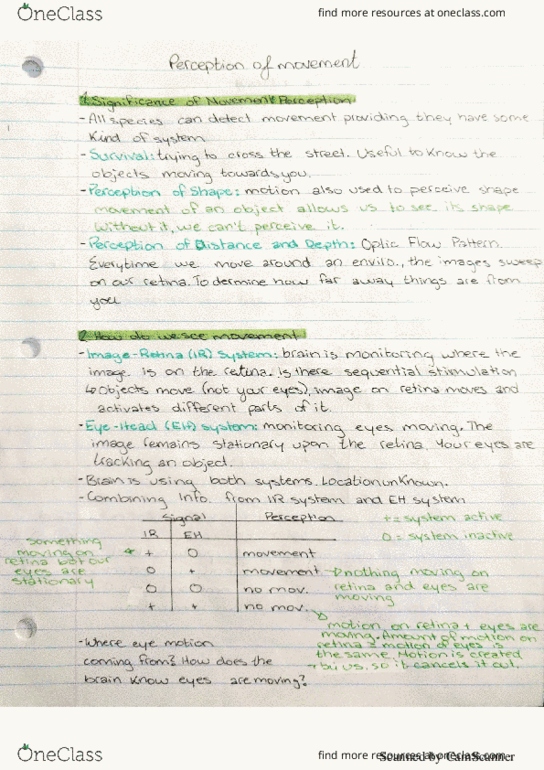 OneClass
find more resources at oneclass.com
Perception of movement
1. Significance of Movement Perception
- All species can detect movement providing they have some
kind of system
- Survival: trying to cross the street. Useful to know the
objects moving towards you.
- Perception of Shape: motion also used to perceive shape
movement of an object allows us to see its shape
without it, we can't perceive it.
- Perception of Distance and Depth: Optic Flow Pattern.
Everytime we move around an enviro., the images sweep
on our retina. To dermine how far away things are from
you
2. How do we see movement
- Image-Retina (IR) System: brain is monitoring where the
image is on the retina. Is there sequential stimulation
↳ Objects move (not your eyes), image on retina moves and
activates different parts of it.
- Eye-Head (EH) system: monitoring eyes moving. The
image remains stationary upon the retina. Your eyes are
tracking an object.
- Brain is using both systems. Location unknown.
- Combining Info. from IR system and EH system
Signal Perception + = system active
IR EH 0 = system inactive
Something
moving on
retina but our
eyes are
stationary
+ 0 movement
0 + movement → nothing moving on
retina and eyes are
moving
0 0 no mov.
+ + no mov.
motion on retina + eyes are
moving. Amount of motion on
retina = motion of eyes is
the same. Motion is created
by us, so it cancels it out.
- Where eye motion
coming from? How does the
brain know eyes are moving?
OneClass
find more resources at oneclass.com
Scanned by CamScanner